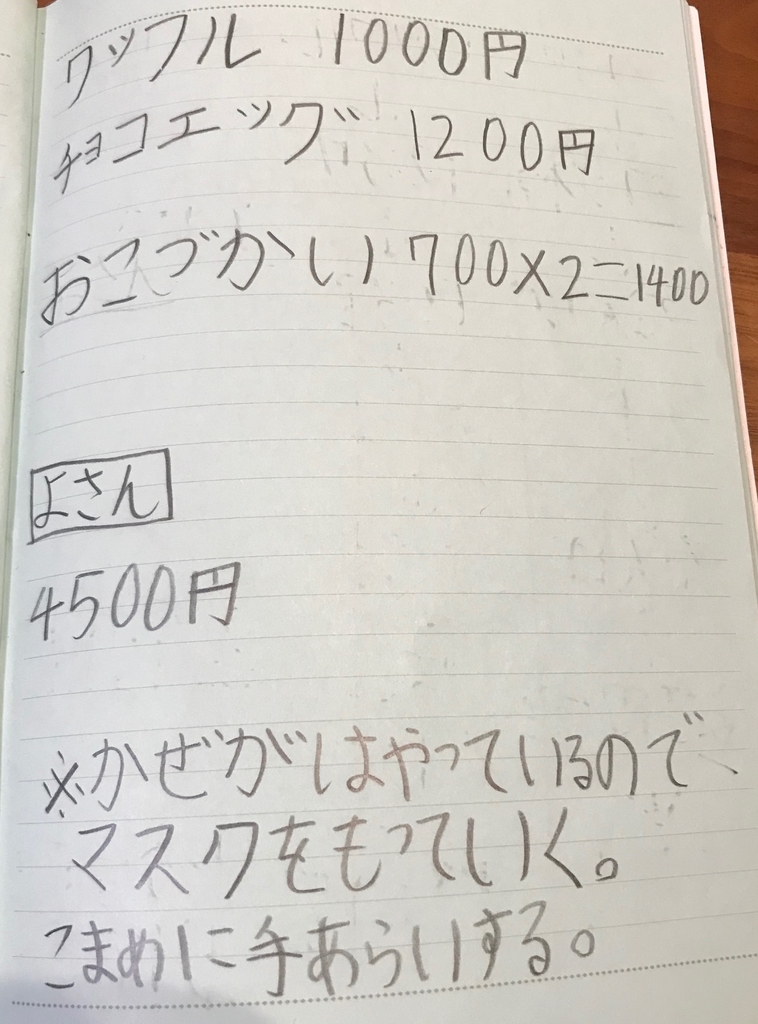 ワッフル 1000円
チョコエッグ 1200円
おこづかい 700×2=1400
よさん
4500円
※かぜがはやっているので、
マスクをもっていく。
こまめに手あらいする。